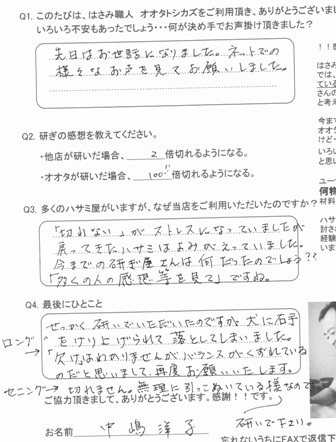 Q1. このたびは、はさみ職人 オオタトシカズをご利用頂き、ありがとうございま
いろいろ不安もあったでしょう・・・何が決め手でお声掛け頂きましたか？
先日はお世話になりました。ネットでの
様々なお声を見てお願いしました。
Q2. 研ぎの感想を教えてください。
・他店が研いだ場合、 2 倍切れるようになる。
・オオタが研いだ場合、 100 倍切れるようになる。
Q3. 多くのハサミ屋がいますが、なぜ当店をご利用いただいたのですか？
「切れない」がストレスになっていましたが
戻ってきたハサミはよみがえっていました。
今までの研ぎ屋さんは何だったのでしょう??
「多くの人の感想等を見て」ですね。
Q4. 最後にひとこと
せっかく研いでいただいたのですが、犬に右手
ロング→
をけり上げられて落としてしまいました。
欠けはわかりませんがバランスがくずれている
のだと思いまして、再度お願いいたします。
セニング→ 切れません。無理に引っこぬいている様なので
ご協力頂きまして、ありがとうございます。感謝！！です。
研いで下さい。
お名前 中嶋洋子
忘れないうちにFAXで返信下
！！
はさみ
では、
ている
さんの
と考え
今まで
オオタ
けど・
いろい
と思い
ユー
何物
材料
ハサ
討さ
経験
いま